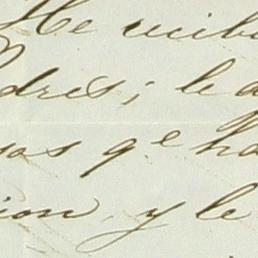 He recib
dres; le a
sas qe ha
ion y le